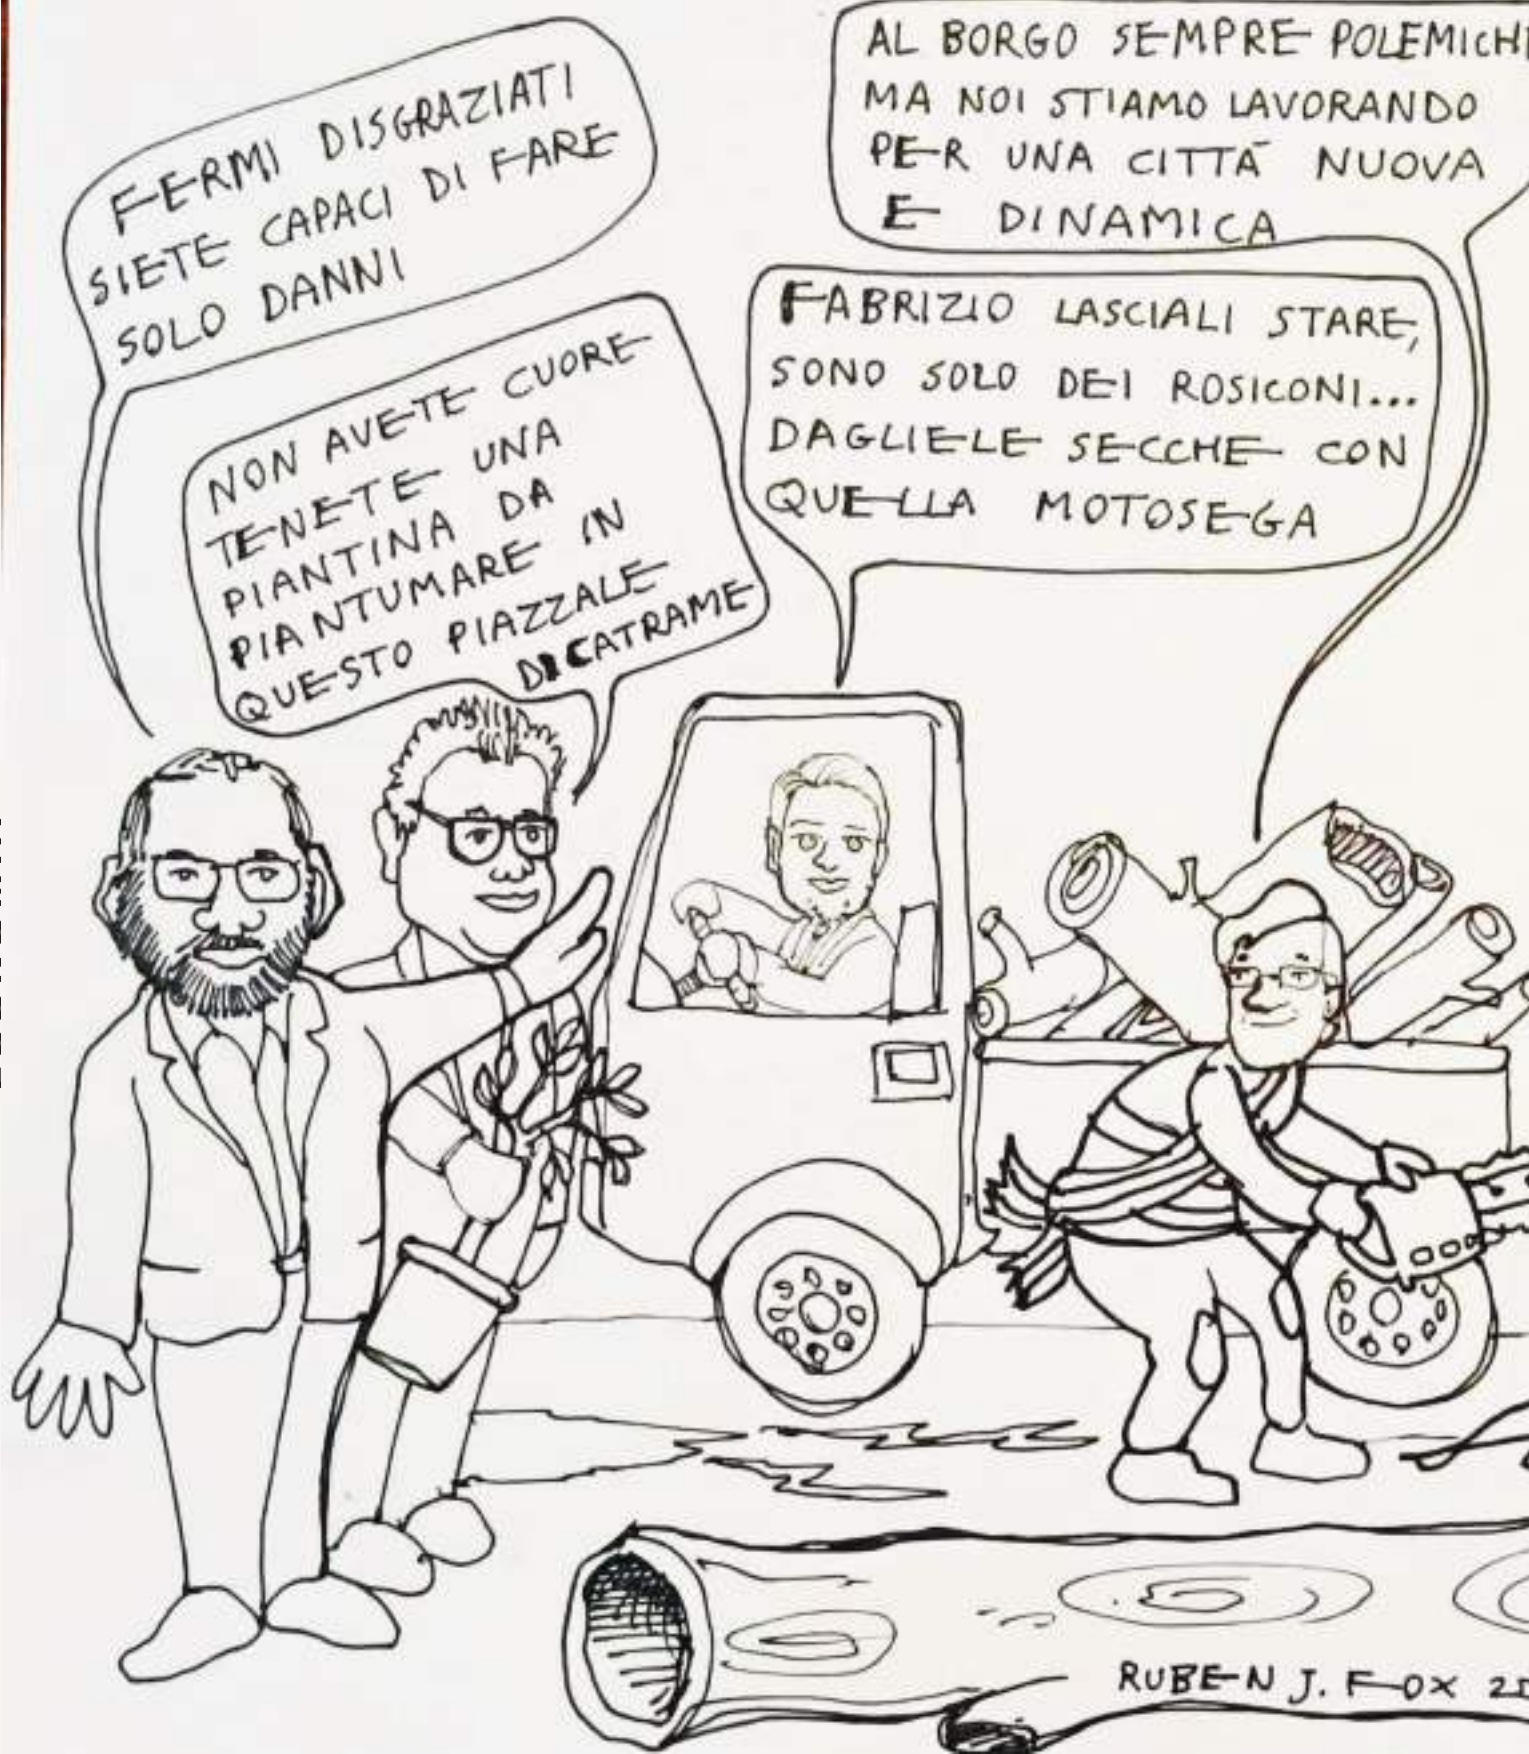 FERMI DISGRAZIATI
SIETE CAPACI DI FARE
SOLO DANNI
NON AVETE CUORE
TENETE UNA
PIANTINA DA
PIANTUMARE IN
QUESTO PIAZZALE
DI CATRAME
AL BORGO SEMPRE POLEMICHE
MA NOI STIAMO LAVORANDO
PER UNA CITTÀ NUOVA
E DINAMICA
FABRIZIO LASCIALI STARE,
SONO SOLO DEI ROSICONI...
DAGLIELE SECCHE CON
QUELLA MOTOSEGA
RUBEN J. FOX